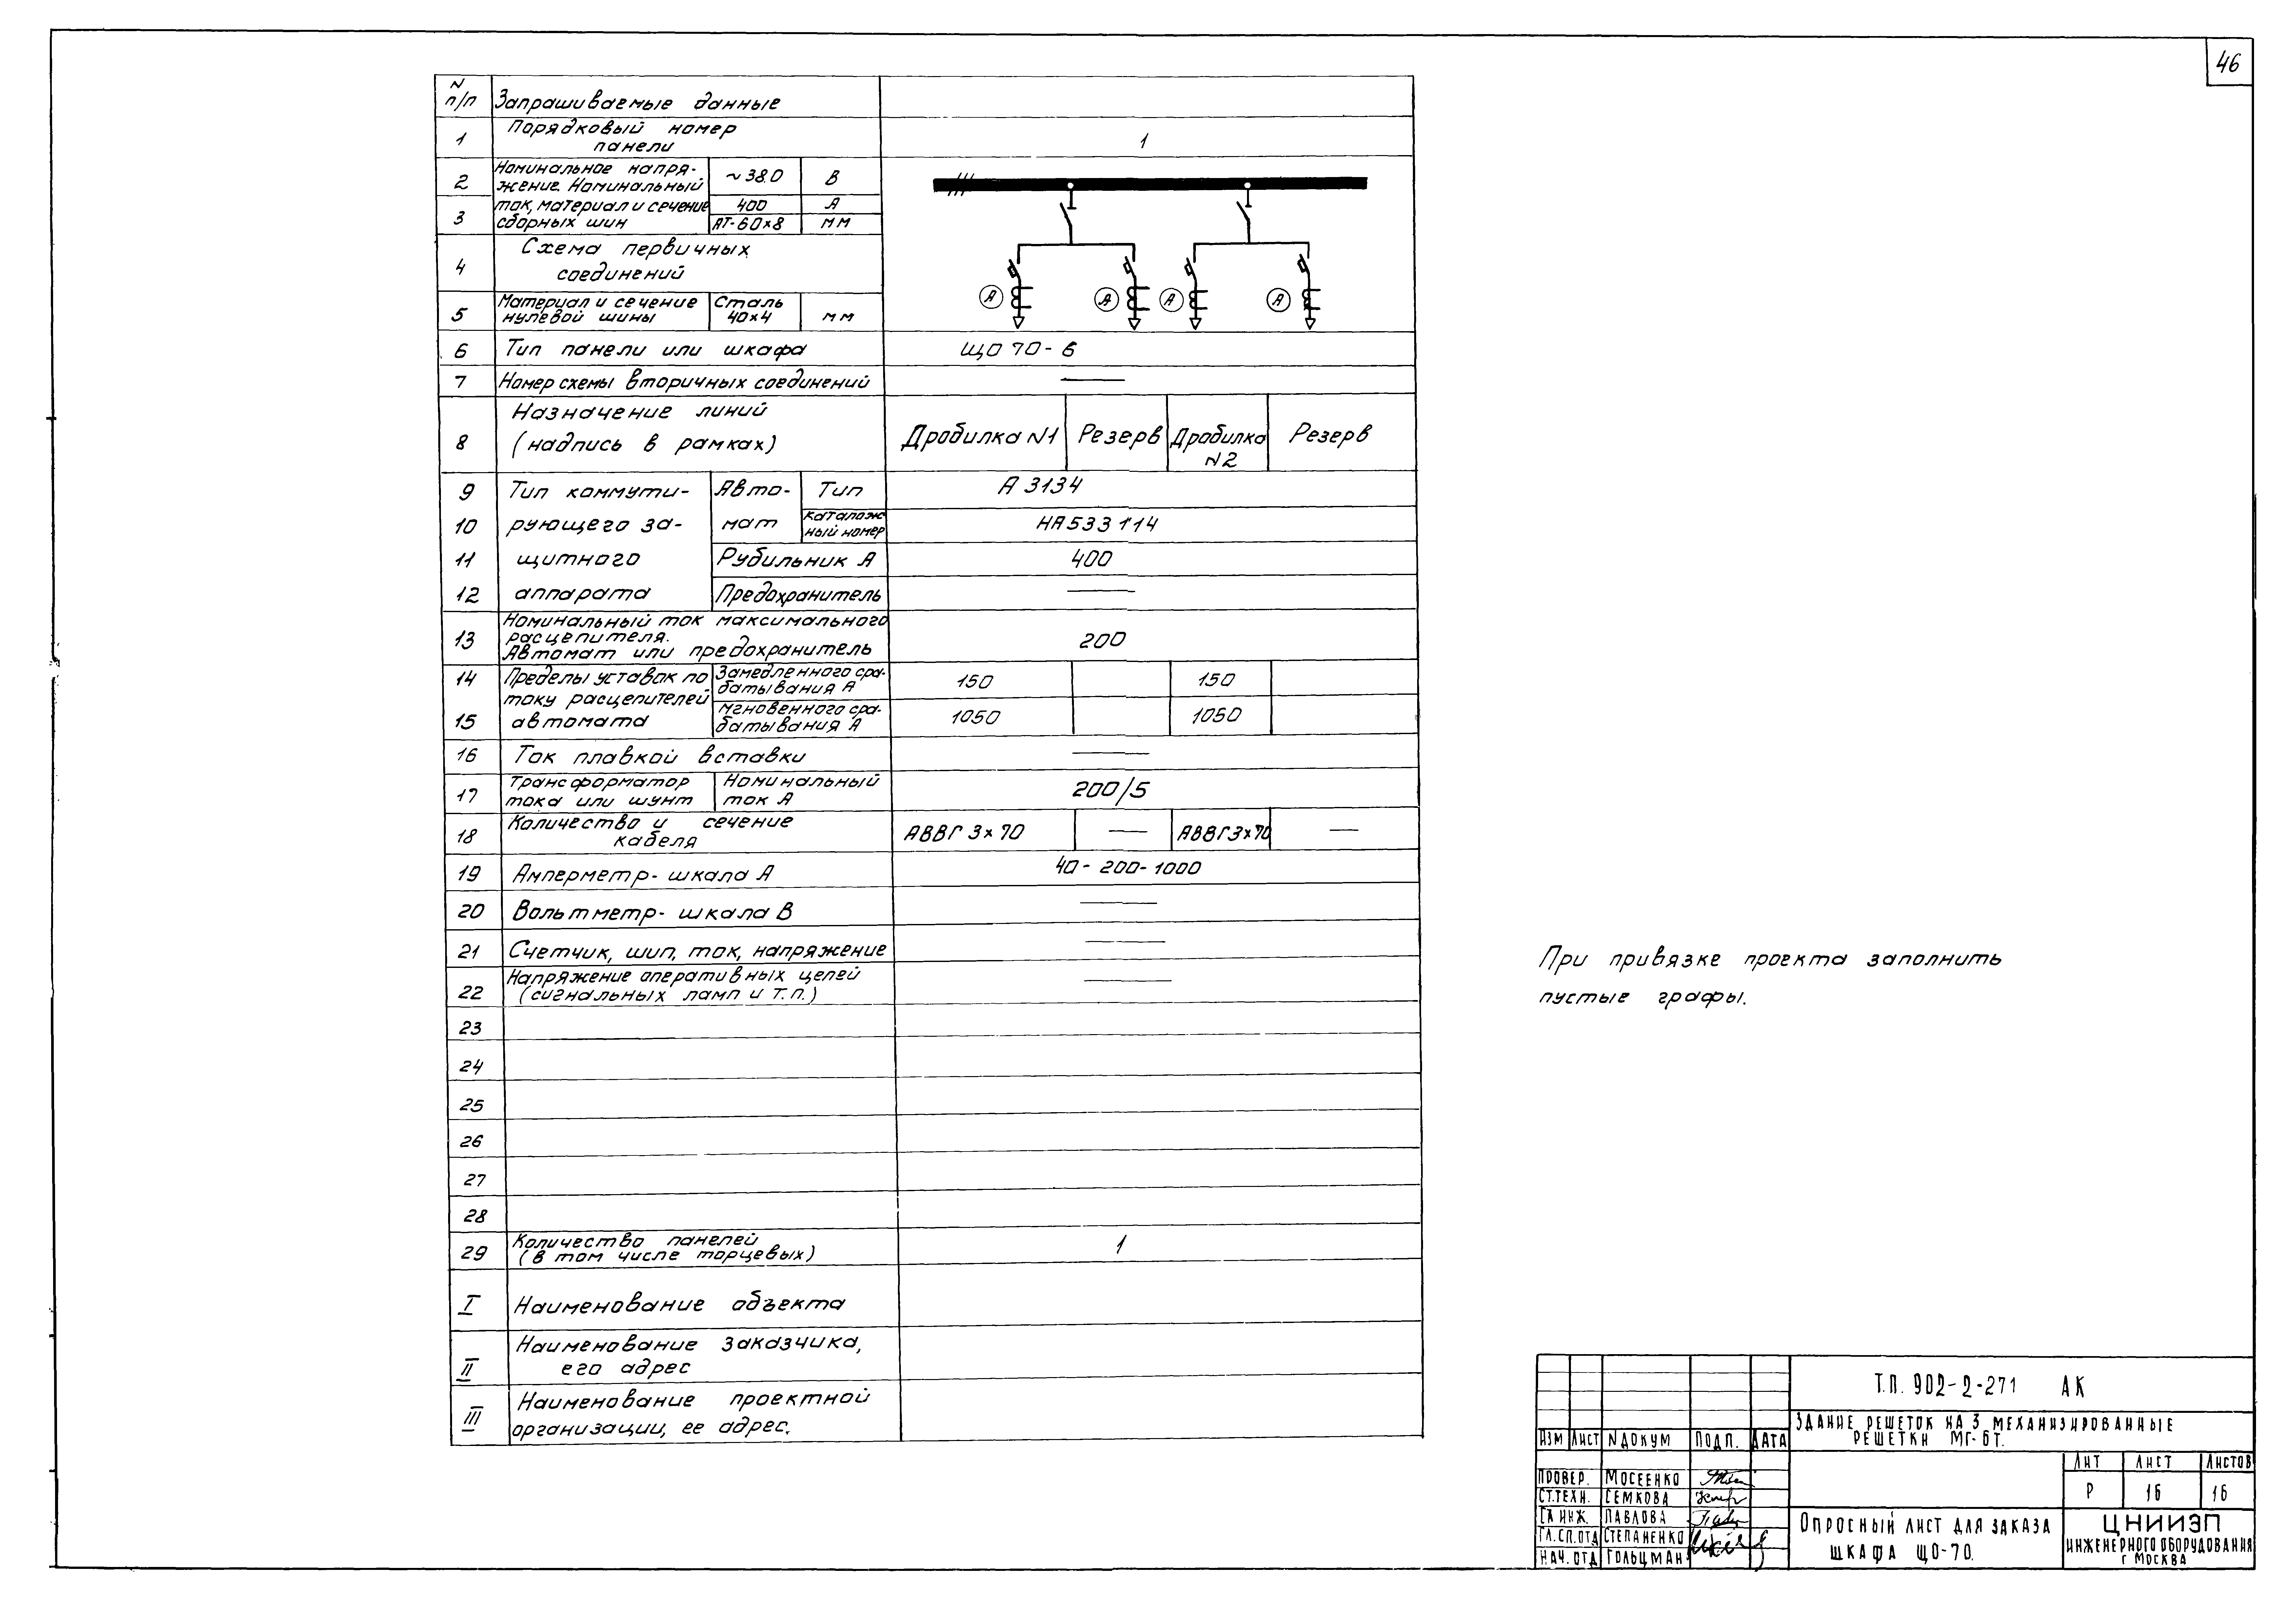 46
N п/п Запрашиваемые данные
1 Порядковый номер панели 1
2 Номинальное напря-
жение. Номинальный ~380 В
3 ток, материал и сечение 400 А
сборных шин АТ-60×8 мм
4 Схема первичных
соединений
А А А А
5 Материал и сечение Сталь
нулевой шины 40×4 мм
6 Тип панели или шкафа ЩО 70-6
7 Номер схемы вторичных соединений —
8 Назначение линий
(надпись в рамках) Дробилка N1 Резерв Дробилка N2 Резерв
9 Тип коммути- Авто- Тип А 3134
10 рующего за- мат каталож-
ный номер НА533114
11 щитного Рубильник А 400
12 аппарата Предохранитель —
13 Номинальный ток максимального
расцепителя.
Автомат или предохранитель 200
14 Пределы уставок по Замедленного сра-
батывания А 150 150
току расцепителей
15 автомата мгновенного сра-
батывания А 1050 1050
16 Ток плавкой вставки —
17 Трансформатор Номинальный
тока или шунт ток А 200/5
18 Количество и сечение
кабеля АВВГ 3×70 — АВВГ3×70 —
19 Амперметр-шкала А 40-200-1000
20 Вольтметр-шкала В —
21 Счетчик, шип, ток, напряжение —
22 Напряжение оперативных цепей
(сигнальных ламп и т.п.) —
23
24
25
26
27
28
29 Количество панелей
(в том числе торцевых) 1
I Наименование объекта
II Наименование заказчика,
его адрес
III Наименование проектной
организации, ее адрес.
При привязке проекта заполнить
пустые графы.
Т.П. 902-2-271 АК
Здание решеток на 3 механизированные
решетки МГ-6Т.
Изм Лист N докум Подп. Дата
Провер. Мосеенко
Ст.техн. Семкова
Гл инж. Павлова
Гл.сп.отд Степаненко
Нач.отд Гольцман
Лит Лист Листов
Р 16 16
Опросный лист для заказа
шкафа ЩО-70.
ЦНИИЭП
инженерного оборудования
г Москва